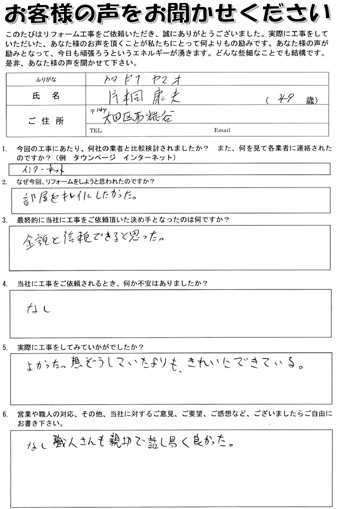 お客様の声をお聞かせください
このたびはリフォーム工事をご依頼いただき、誠にありがとうございました。実際に工事をして
いただいた、あなた様のお声を頂くことが私たちにとって何よりもの励みです。あなた様の声が
励みとなって、今日も頑張ろうというエネルギーが湧きます。どんな些細なことでも結構です。
是非、あなた様の声を聞かせて下さい。
ふりがな カタギリ ヤスオ
氏名 片桐 康夫 ( 49 歳)
ご住所 〒144 大田区西糀谷
TEL Email
1. 今回の工事にあたり、何社の業者と比較検討されましたか? また、何を見て各業者に連絡された
のですか?(例 タウンページ インターネット)
インターネット
2. なぜ今回、リフォームをしようと思われたのですか?
部屋をキレイにしたかった。
3. 最終的に当社に工事をご依頼頂いた決め手となったのは何ですか?
会話と信頼できると思った。
4. 当社に工事をご依頼されるとき、何か不安はありましたか?
なし
5. 実際に工事をしてみていかがでしたか?
よかった。想ぞうしていたよりも、きれいにできている。
6. 営業や職人の対応、その他、当社に対するご意見、ご要望、ご感想など、ございましたらご自由に
お書き下さい。
なし 職人さんも親切で話し易く良かった。